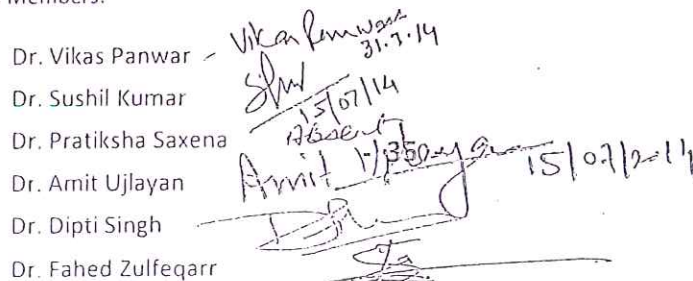 Members:
Dr. Vikas Panwar - Vikas Panwar
31.7.14
Dr. Sushil Kumar
15/07/14
Dr. Pratiksha Saxena Absent
Dr. Amit Ujlayan Amit 15/07/2014
Dr. Dipti Singh
Dr. Fahed Zulfeqarr